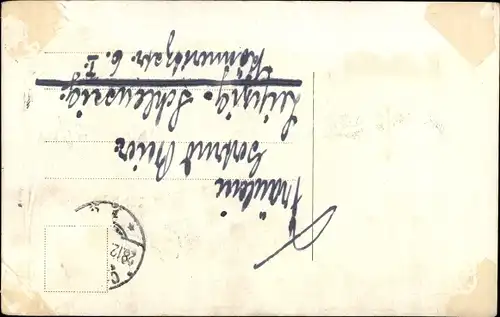 Fräulein
Gertrud
Leipzig-Schleußig.
Könneritzstr. 6. I.
28.12